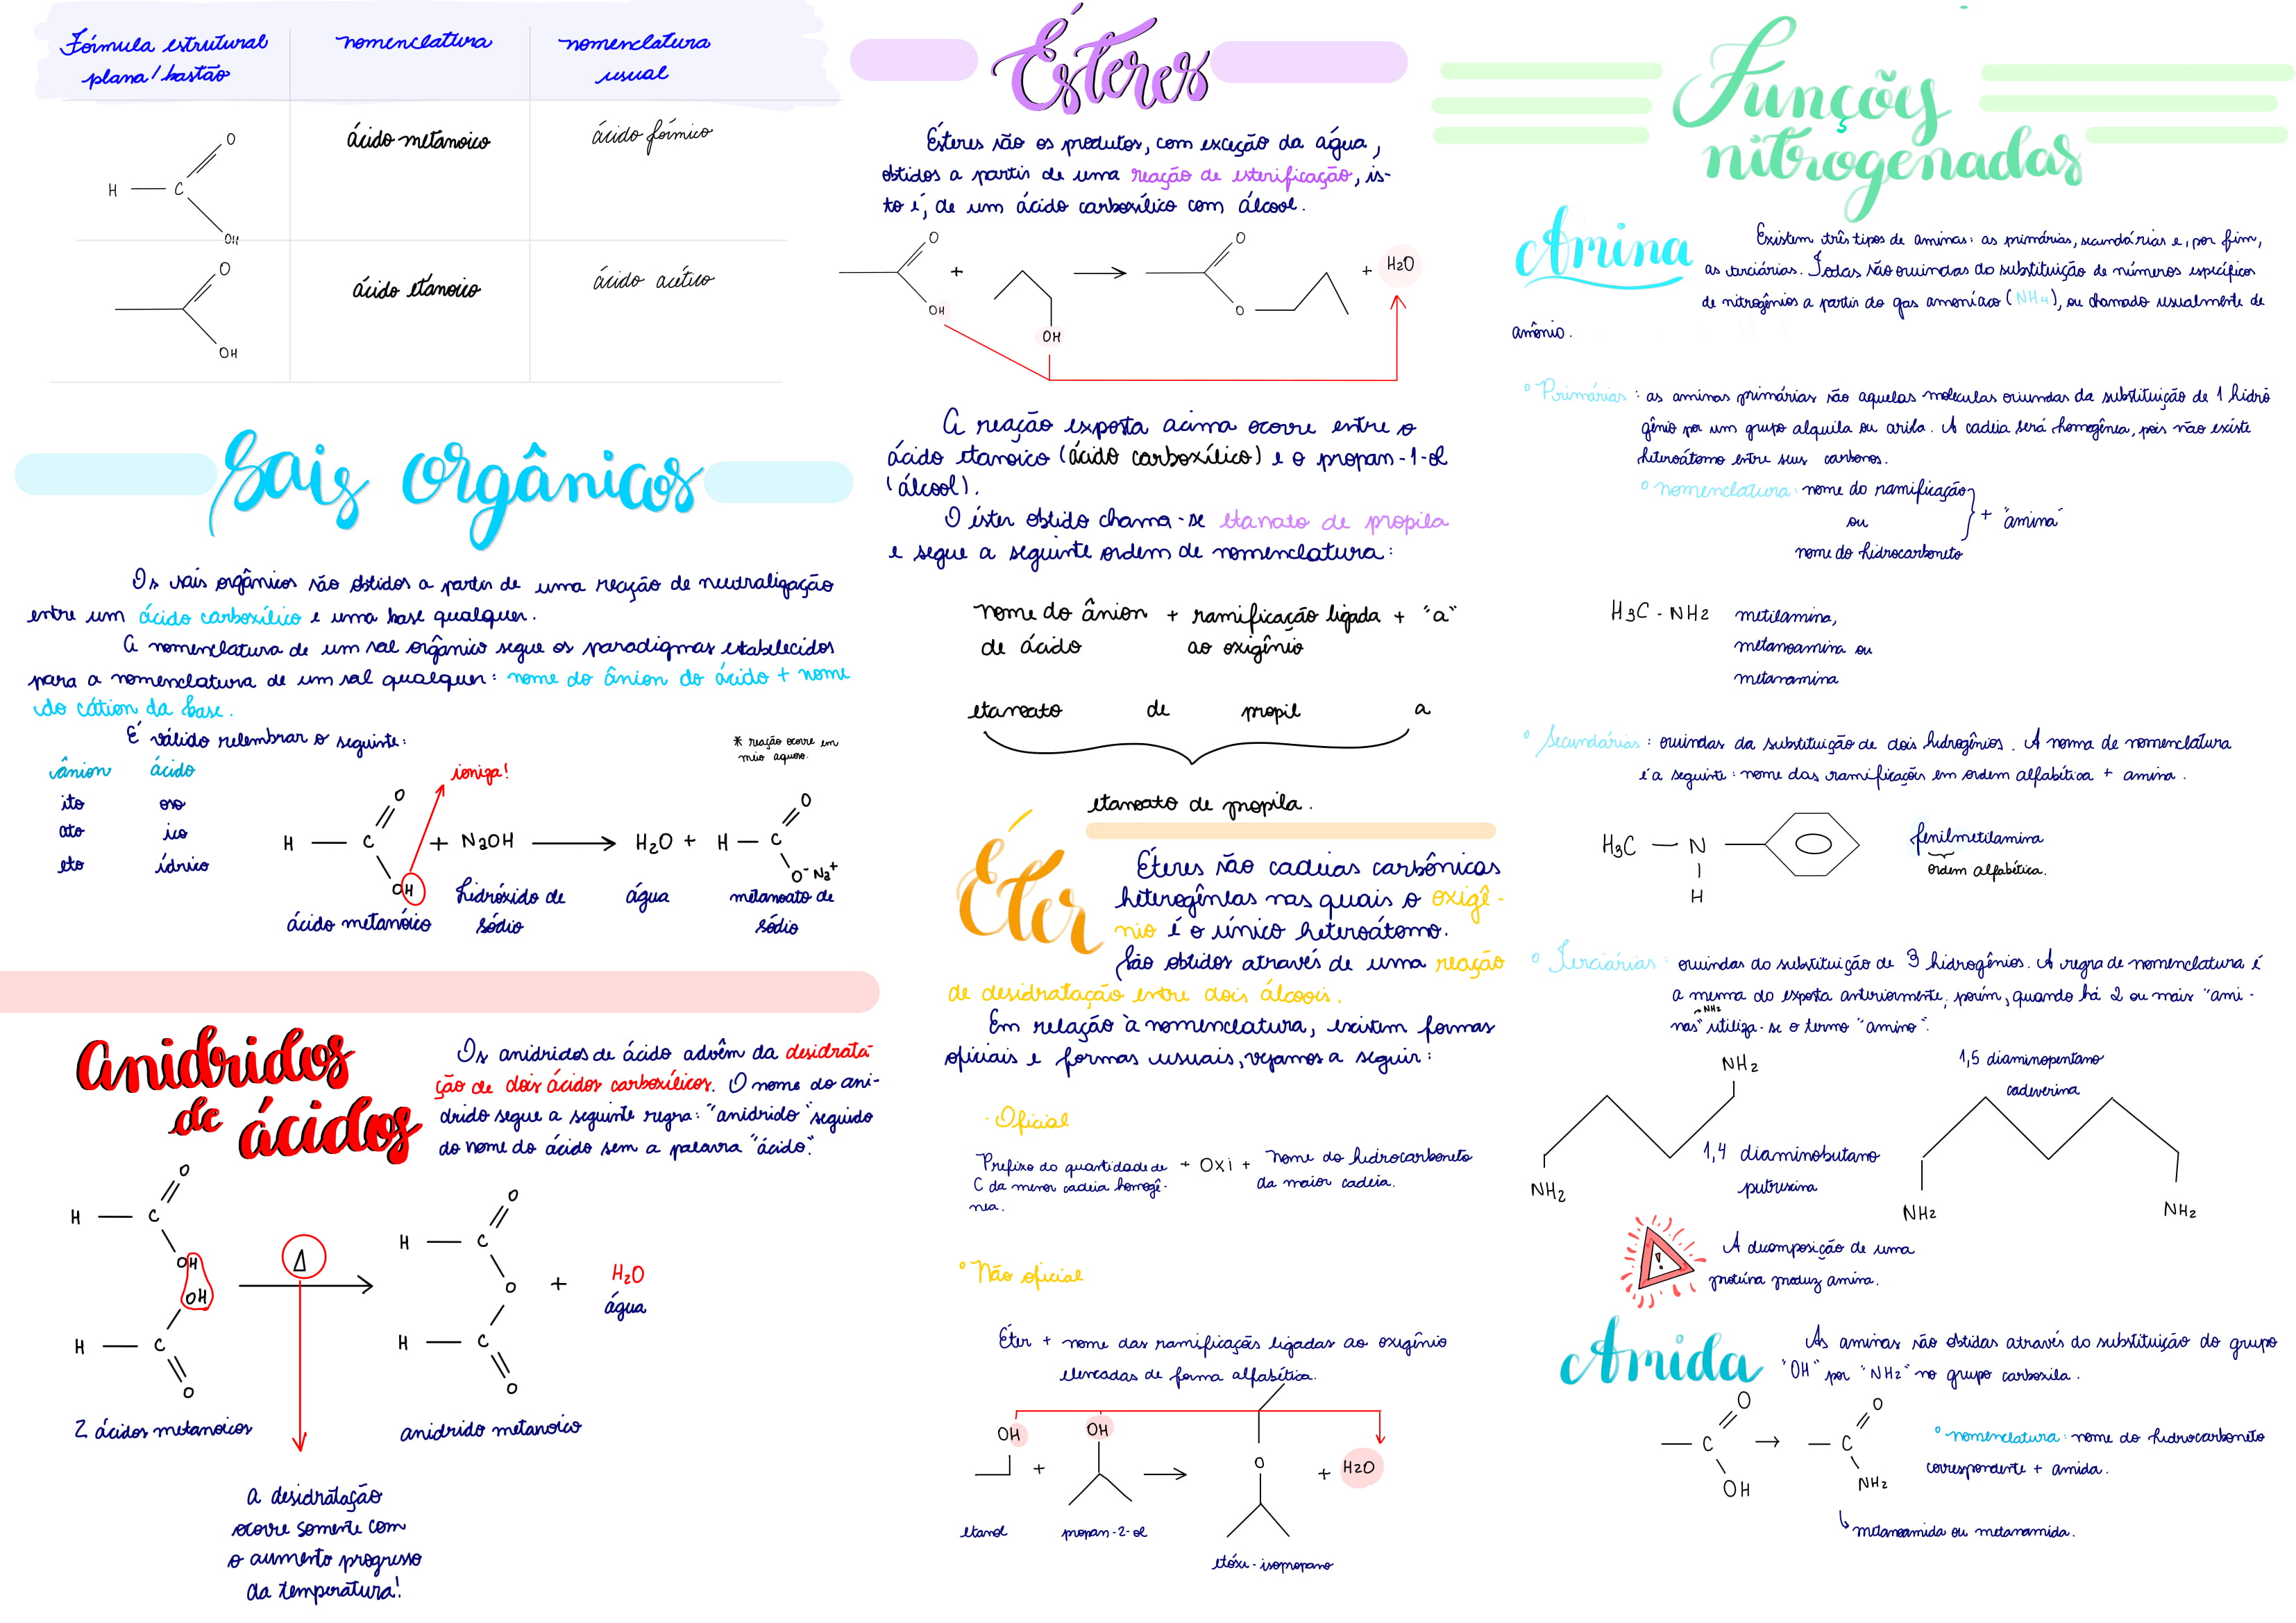 Fórmula estrutural
plana/bastão
nomenclatura
nomenclatura
usual
O
H
C
OH
ácido metanoico
ácido fórmico
O
OH
ácido etanoico
ácido acético
Sais orgânicos
Os sais orgânicos são obtidos a partir de uma reação de neutralização
entre um ácido carboxílico e uma base qualquer.
A nomenclatura de um sal orgânico segue os paradigmas estabelecidos
para a nomenclatura de um sal qualquer: nome do ânion do ácido + nome
do cátion da base.
É válido relembrar o seguinte:
ânion ácido
ito oso
ato ico
eto ídrico
* reação ocorre em
meio aquoso.
ioniza!
O
H C + NaOH H2O + H C
OH
O
O- Na+
ácido metanóico
hidróxido de
sódio
água
metanoato de
sódio
Anidridos
de ácidos
Os anidridos de ácido advêm da desidrata-
ção de dois ácidos carboxílicos. O nome do ani-
drido segue a seguinte regra: "anidrido" seguido
do nome do ácido sem a palavra "ácido".
O
H C
OH
OH
H C
O
2 ácidos metanoicos
Δ
O
H C
O
H C
O
anidrido metanoico
+
H2O
água
A desidratação
ocorre somente com
o aumento progresso
da temperatura!
Ésteres
Ésteres são os produtos, com exceção da água,
obtidos a partir de uma reação de esterificação, is-
to é, de um ácido carboxílico com álcool.
O
OH
+
OH
O
O
+ H2O
A reação exposta acima ocorre entre o
ácido etanoico (ácido carboxílico) e o propan-1-ol
(álcool).
O éster obtido chama-se etanato de propila
e segue a seguinte ordem de nomenclatura:
nome do ânion + ramificação ligada + "a"
de ácido ao oxigênio
etanoato de propil a
etanoato de propila.
Éter
Éteres são cadeias carbônicas
heterogêneas nas quais o oxigê-
nio é o único heteroátomo.
São obtidos através de uma reação
de desidratação entre dois álcoois.
Em relação à nomenclatura, existem formas
oficiais e formas usuais, vejamos a seguir:
· Oficial
Prefixo da quantidade de
C da menor cadeia homogê-
nea.
+ Oxi +
nome do hidrocarboneto
da maior cadeia.
° Não oficial
Éter + nome das ramificações ligadas ao oxigênio
elencadas de forma alfabética.
OH
+
OH
O
+ H2O
etanol
propan-2-ol
etóxi-isopropano
Funções
nitrogenadas
Amina
Existem três tipos de aminas: as primárias, secundárias e, por fim,
as terciárias. Todas são oriundas da substituição de números específicos
de nitrogênios a partir do gas amoníaco (NH4), ou chamado usualmente de
amônio.
° Primárias: as aminas primárias são aquelas moleculas oriundas da substituição de 1 hidro
gênio por um grupo alquila ou arila. A cadeia será homogênea, pois não existe
heteroátomo entre seus carbonos.
° nomenclatura: nome do ramificação
ou
nome do hidrocarboneto
+ "amina"
H3C - NH2
metilamina,
metanoamina ou
metanamina
° Secundárias: oriundas da substituição de dois hidrogênios. A norma de nomenclatura
é a seguinte: nome das ramificações em ordem alfabética + amina.
H3C N
H
fenilmetilamina
ordem alfabética.
° Terciárias: oriundas do substituição de 3 hidrogênios. A regra de nomenclatura é
a mesma do exposta anteriormente, porém, quando há 2 ou mais "ami-
nas" utiliza-se o termo "amino".
NH2
NH2
NH2
1,4 diaminobutano
putrescina
1,5 diaminopentano
cadeverina
NH2
NH2
!
A decomposição de uma
proteína produz amina.
Amida
As aminas são obtidas através do substituição do grupo
"OH" por "NH2" no grupo carboxila.
O
C
OH
O
C
NH2
° nomenclatura: nome do hidrocarboneto
correspondente + amida.
metanoamida ou metanamida.